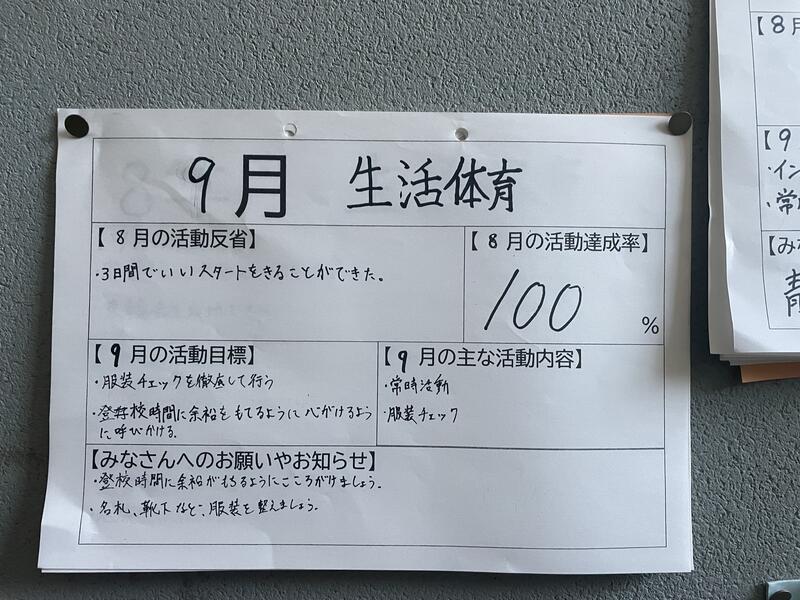 9月 生活体育
【8月の活動反省】
・3日間でいいスタートをきることができた。
【8月の活動達成率】
100
%
【9月の活動目標】
・服装チェックを徹底して行う
・登校時間に余裕をもてるように心がけるよう
に呼びかける。
【9月の主な活動内容】
・常時活動
・服装チェック
【みなさんへのお願いやお知らせ】
・登校時間に余裕がもてるようにこころがけましょう。
・名札、靴下など、服装を整えましょう。
【8月
【9
・イン
・常
【みな
青